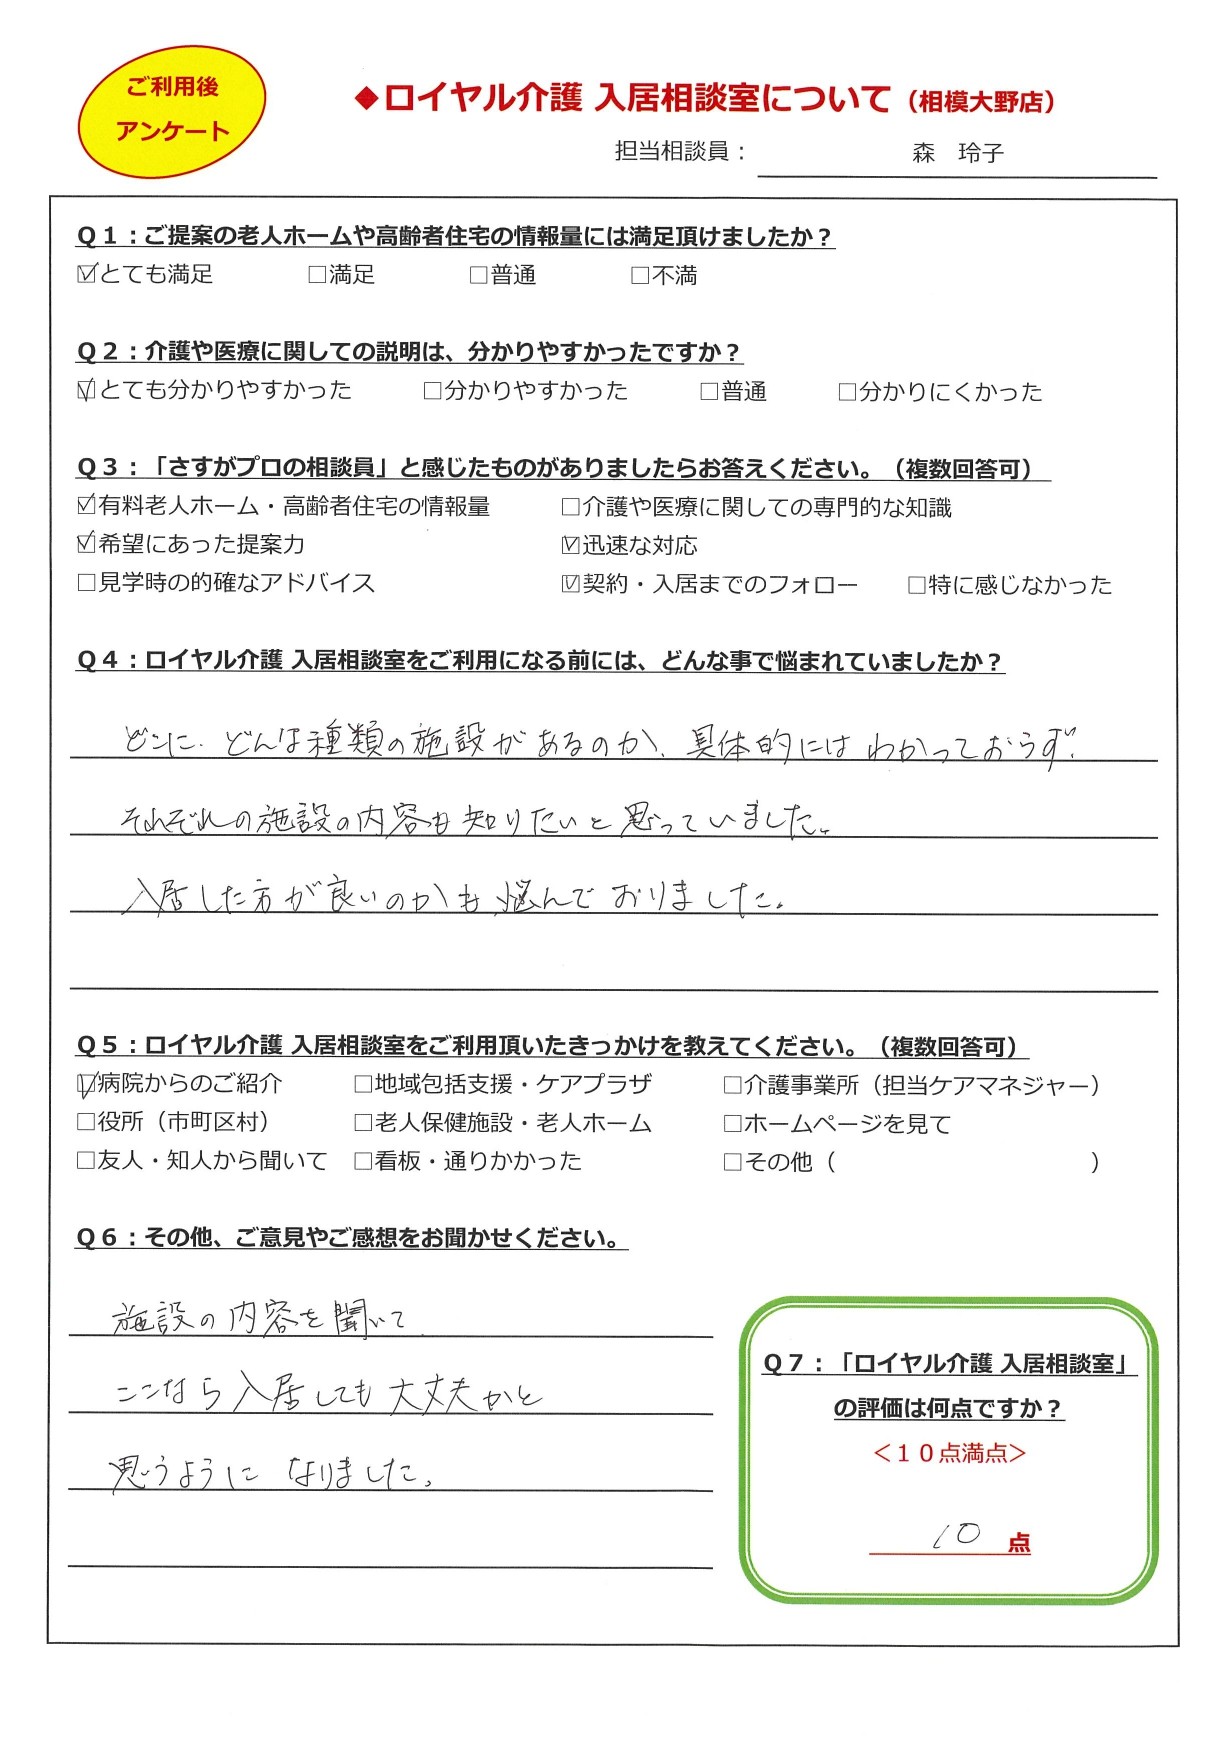 ご利用後
アンケート
◆ロイヤル介護 入居相談室について（相模大野店）
担当相談員： 森　玲子
Ｑ１：ご提案の老人ホームや高齢者住宅の情報量には満足頂けましたか？
☑とても満足 □満足 □普通 □不満
Ｑ２：介護や医療に関しての説明は、分かりやすかったですか？
☑とても分かりやすかった □分かりやすかった □普通 □分かりにくかった
Ｑ３：「さすがプロの相談員」と感じたものがありましたらお答えください。（複数回答可）
☑有料老人ホーム・高齢者住宅の情報量 □介護や医療に関しての専門的な知識
☑希望にあった提案力 ☑迅速な対応
□見学時の的確なアドバイス ☑契約・入居までのフォロー □特に感じなかった
Ｑ４：ロイヤル介護 入居相談室をご利用になる前には、どんな事で悩まれていましたか？
どこに、どんな種類の施設があるのか、具体的にはわかっておらず、
それぞれの施設の内容も知りたいと思っていました。
入居した方が良いのかも悩んでおりました。
Ｑ５：ロイヤル介護 入居相談室をご利用頂いたきっかけを教えてください。（複数回答可）
☑病院からのご紹介 □地域包括支援・ケアプラザ □介護事業所（担当ケアマネジャー）
□役所（市町区村） □老人保健施設・老人ホーム □ホームページを見て
□友人・知人から聞いて □看板・通りかかった □その他（　　　　　　　　　　　）
Ｑ６：その他、ご意見やご感想をお聞かせください。
施設の内容を聞いて
ここなら入居しても大丈夫かと
思うように なりました。
Ｑ７：「ロイヤル介護 入居相談室」
の評価は何点ですか？
＜１０点満点＞
10 点